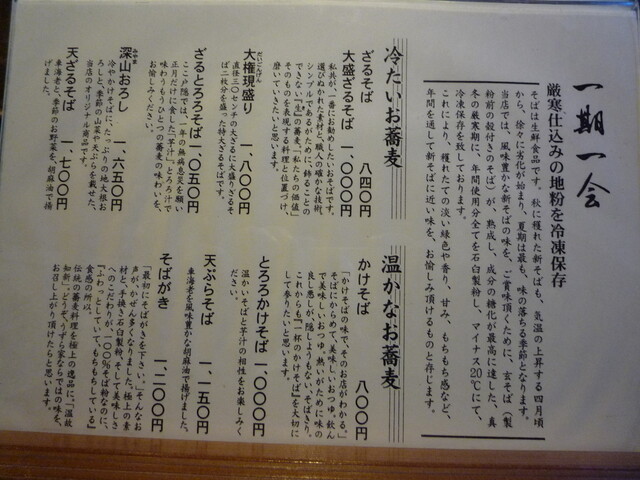 一期一会
厳寒仕込みの地粉を冷凍保存
そばは生鮮食品です。秋に穫れた新そばも、気温の上昇する四月頃
から、徐々に劣化が始まり、夏期は最も、味の落ちる季節となります。
当店では、風味豊かな新そばの味を、ご賞味頂くために、玄そば(製
粉前の殻付きのそば)が、熟成し、成分の糖化が最高に達した、真
冬の厳寒期に、年間使用分全てを石臼製粉し、マイナス20℃にて、
冷凍保存を致しております。
これにより、穫れたての淡い緑色や香り、甘み、もちもち感など、
年間を通して新そばに近い味を、お愉しみ頂けるものと存じます。
冷たいお蕎麦
ざるそば 八四〇円
大盛ざるそば 一、〇〇〇円
私共が、一番にお勧めしたいおそばです。
選びぬかれた素材と、職人の確かな技術。
シンプルでありがために、飾ることの
できない「生」の蕎麦。「私たちの価値」
そのものを表現する料理と位置づけ、
磨いていきたいと思います。
大権現盛り 一、八〇〇円
だいごんげん
直径三〇センチの大ざるに大盛りざるそ
ば二枚分を盛った特大ざるそばです。
ざるとろろそば 一、〇五〇円
ここ戸隠では、一年の無病息災を願い
正月だけに食した「芋汁」。とろろ汁で
味わうもうひとつの蕎麦の味わいを、
お愉しみください。
深山おろし 一、六五〇円
みやま
冷やかけそばに、たっぷりの地大根お
ろしと、季節の山菜や天ぷらを載せた、
当店のオリジナル商品です。
天ざるそば 一、七〇〇円
車海老と、季節のお野菜を、胡麻油で揚
げました。
温かなお蕎麦
かけそば 八〇〇円
「かけそばの味で、そのお店がわかる。」
そばにからめて、美味しいおつゆ。飲ん
で美味しいおつゆ。熱いがために味の
良し悪しが、隠しようもない、そばぎり。
これからも「一杯のかけそば」を大切に
して参りたいと思います。
とろろかけそば 一、〇〇〇円
温かいそばと芋汁の相性をお楽しみく
ださい。
天ぷらそば 一、一五〇円
車海老を風味豊かな胡麻油で揚げました。
そばがき 一、二〇〇円
「最初にそばがきを下さい。」そんなお
声が、かぜん多くなりました。極上の素
材と、手挽き石臼製粉、そして美味しさ
へのこだわりが、一〇〇%そば粉なのに、
「ふわっとしていて、もちもちしている」
食感の所以
伝統の蕎麦料理を極上の逸品に。「温故
知新」。どうぞ、うずら家ならではの味を、
お召し上がり頂けたらと思います。